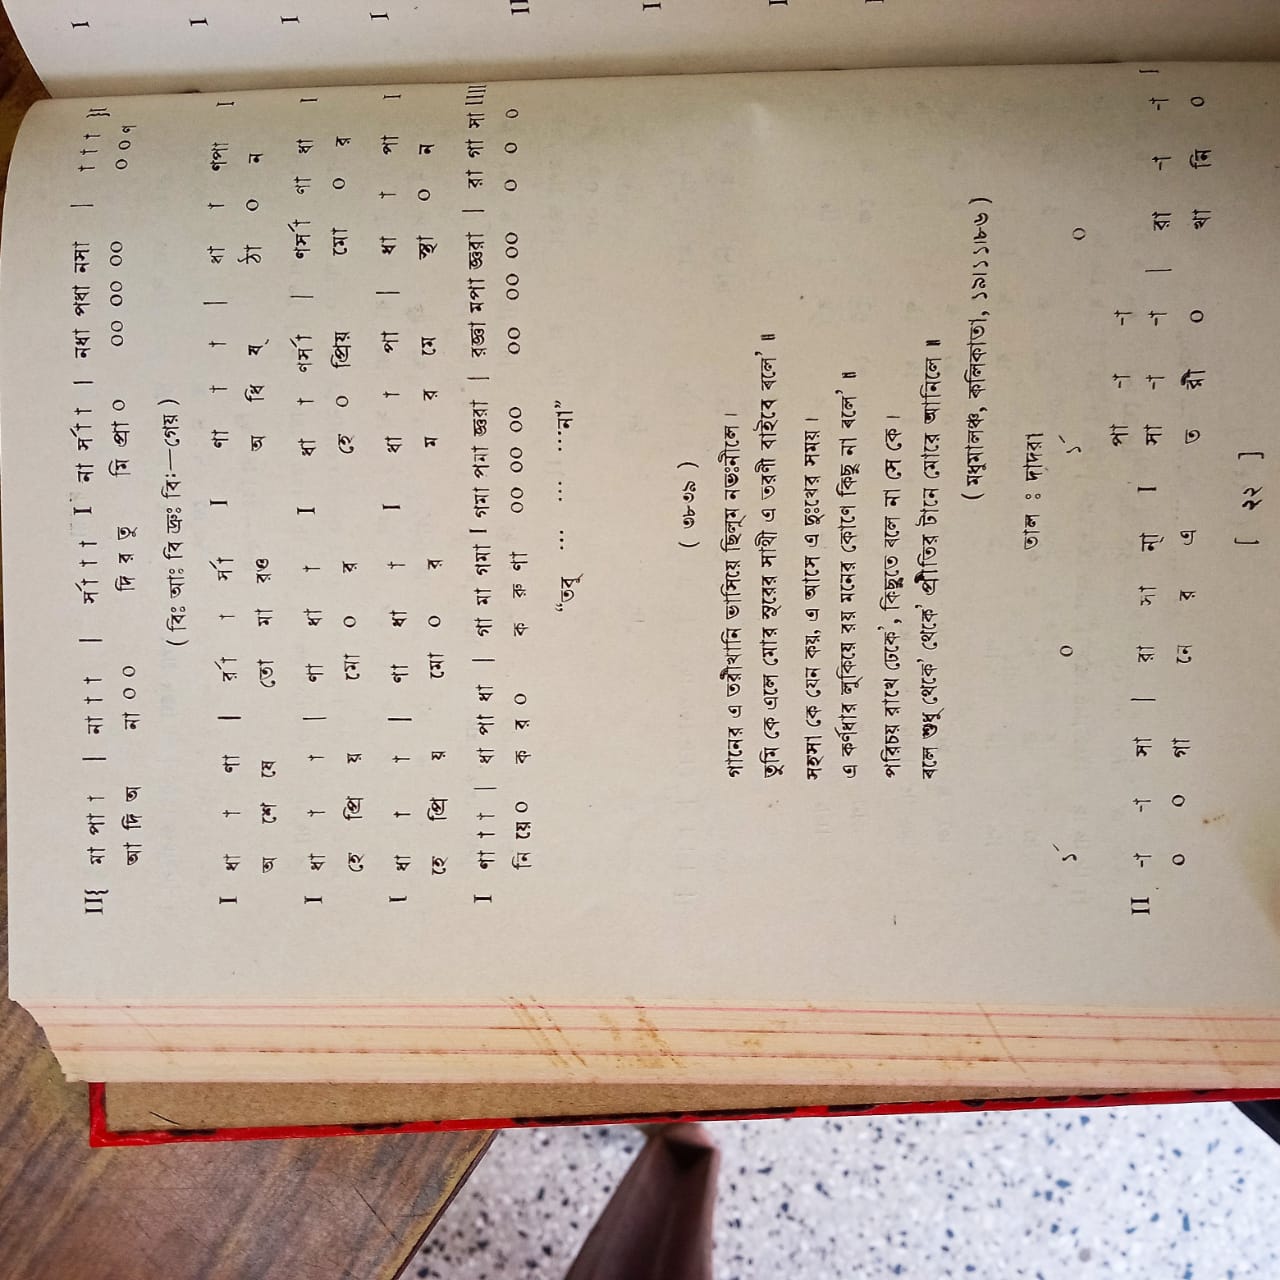 II{ মা পা া | না া া | র্সা া া I না র্সা া | নধা পধা নসা | া া া }I
আ দি অ না ০ ০ দি র তু মি প্রা ০ ০০ ০০ ০০ ০ ০ ণ
( বিঃ আঃ বি দ্রুঃ বিঃ—গেয় )
I ধা া ণা | র্রা া র্সা I ণা া া | ধা া ণপা I
অ শে ষে তো মা রও অ ধি ষ্ ঠা ০ ন
I ধা া া | ণা ধা া I ধা া ণর্সা | ণর্সা ণা ধা I
হে প্রি য় মো ০ র হে ০ প্রিয় মো ০ র
I ধা া া | ণা ধা া I ধা া পা | ধা া পা I
হে প্রি য় মো ০ র ম র মে স্থা ০ ন
I ণা া া | ধা পা ধা | গা মা গমা I গমা পমা জ্ঞরা | রজ্ঞা মপা জ্ঞরা | রা গা সা IIII
নি য়ে ০ ক র ০ ক রু ণা ০০ ০০ ০০ ০০ ০০ ০০ ০ ০ ০
“তবু ... ... ...না”
( ৩৮৩৯ )
গানের এ তরীখানি ভাসিয়ে ছিলুম নভঃনীলে।
তুমি কে এলে মোর সুরের সাথী এ তরণী বাইবে বলে’ ॥
সহসা কে যেন কয়, এ আসে এ দুঃখের সময়।
এ কর্ণধার লুকিয়ে রয় মনের কোণে কিছু না বলে’ ॥
পরিচয় রাখে ঢেকে’, কিছুতে বলে না সে কে।
বলে শুধু থেকে’ প্রীতির টানে মোরে আনিলে ॥
( মধুমালঞ্চ, কলিকাতা, ১৯।১১।৮৬ )
তাল : দাদরা
১´ ০ ১´ ০
পা -া -া
II -া -া সা | রা সা ন্া I সা -া -া | রা -া -া I
০ ০ গা নে র এ ত রী ০ খা নি ০
[ ২২ ]